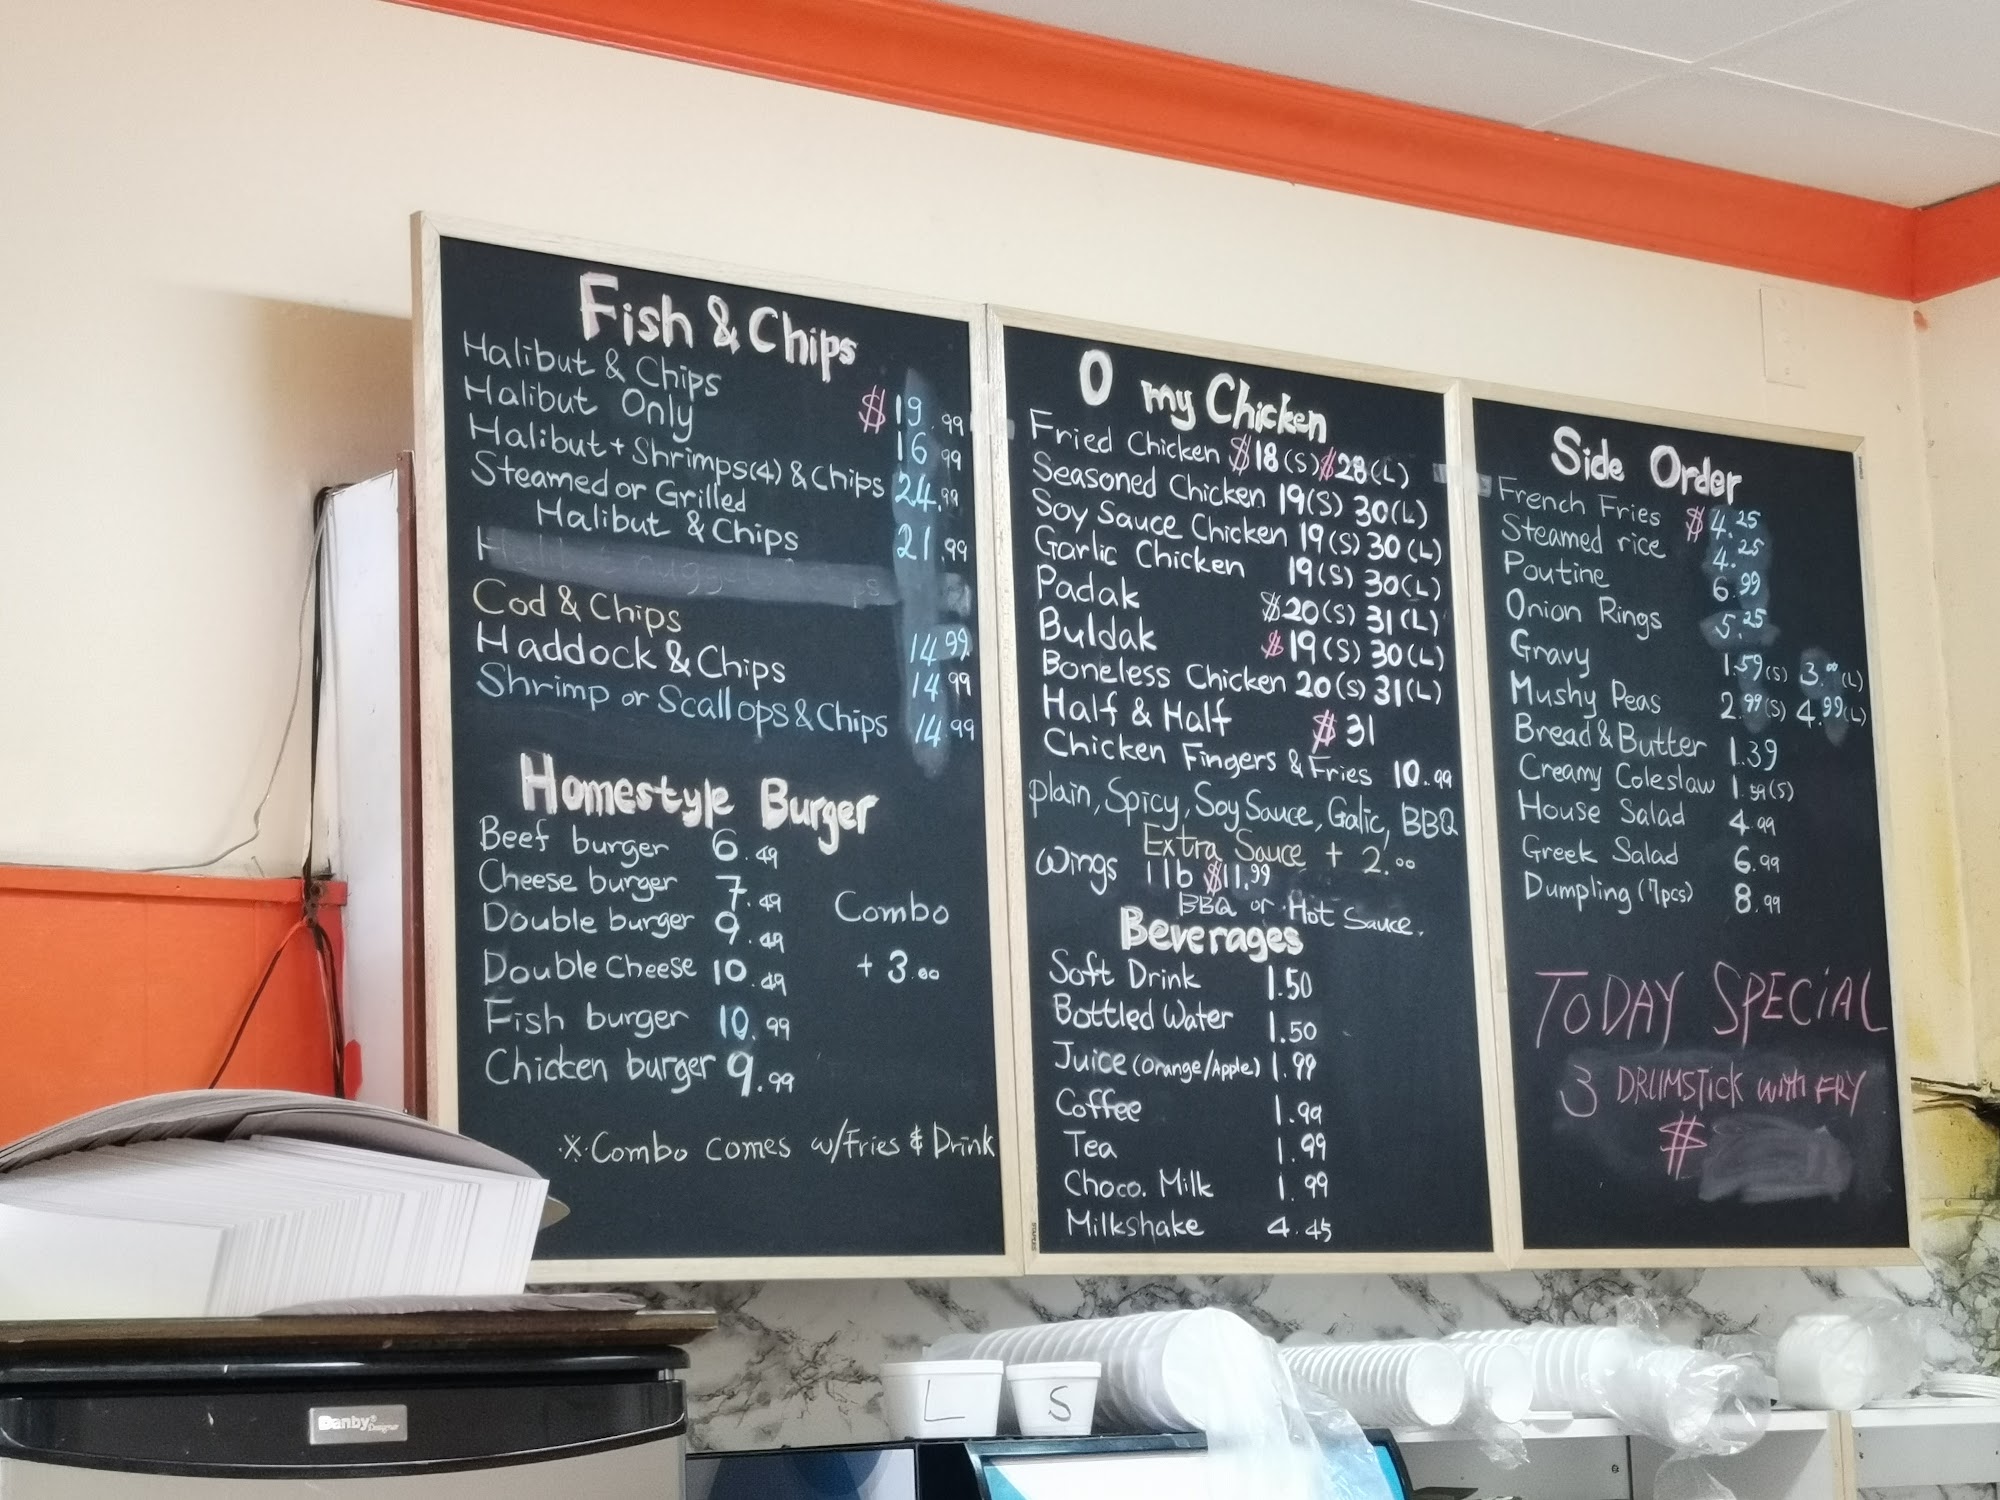 Fish & Chips
Halibut & Chips $19.99
Halibut Only 16.99
Halibut + Shrimps(4) & Chips 24.99
Steamed or Grilled
Halibut & Chips 21.99
Cod & Chips 14.99
Haddock & Chips 14.99
Shrimp or Scallops & Chips 14.99
Homestyle Burger
Beef burger 6.49
Cheese burger 7.49
Double burger 9.49
Double Cheese 10.49
Fish burger 10.99
Chicken burger 9.99
Combo
+ 3.00
※ Combo comes w/Fries & Drink
O my Chicken
Fried Chicken $18(S) $28(L)
Seasoned Chicken 19(S) 30(L)
Soy Sauce Chicken 19(S) 30(L)
Garlic Chicken 19(S) 30(L)
Padak $20(S) 31(L)
Buldak $19(S) 30(L)
Boneless Chicken 20(S) 31(L)
Half & Half $31
Chicken Fingers & Fries 10.99
plain, Spicy, Soy Sauce, Galic, BBQ
Extra Sauce + 2.00
Wings 1lb $11.99
BBQ or Hot Sauce.
Beverages
Soft Drink 1.50
Bottled Water 1.50
Juice (Orange/Apple) 1.99
Coffee 1.99
Tea 1.99
Choco. Milk 1.99
Milkshake 4.45
Side Order
French Fries $4.25
Steamed rice 4.25
Poutine 6.99
Onion Rings 5.25
Gravy 1.59(S) 3.00(L)
Mushy Peas 2.99(S) 4.99(L)
Bread & Butter 1.39
Creamy Coleslaw 1.59(S)
House Salad 4.99
Greek Salad 6.99
Dumpling (7pcs) 8.99
TODAY SPECiAL
3 DRUMSTiCK with FRY
$
L
S
Danby Designer